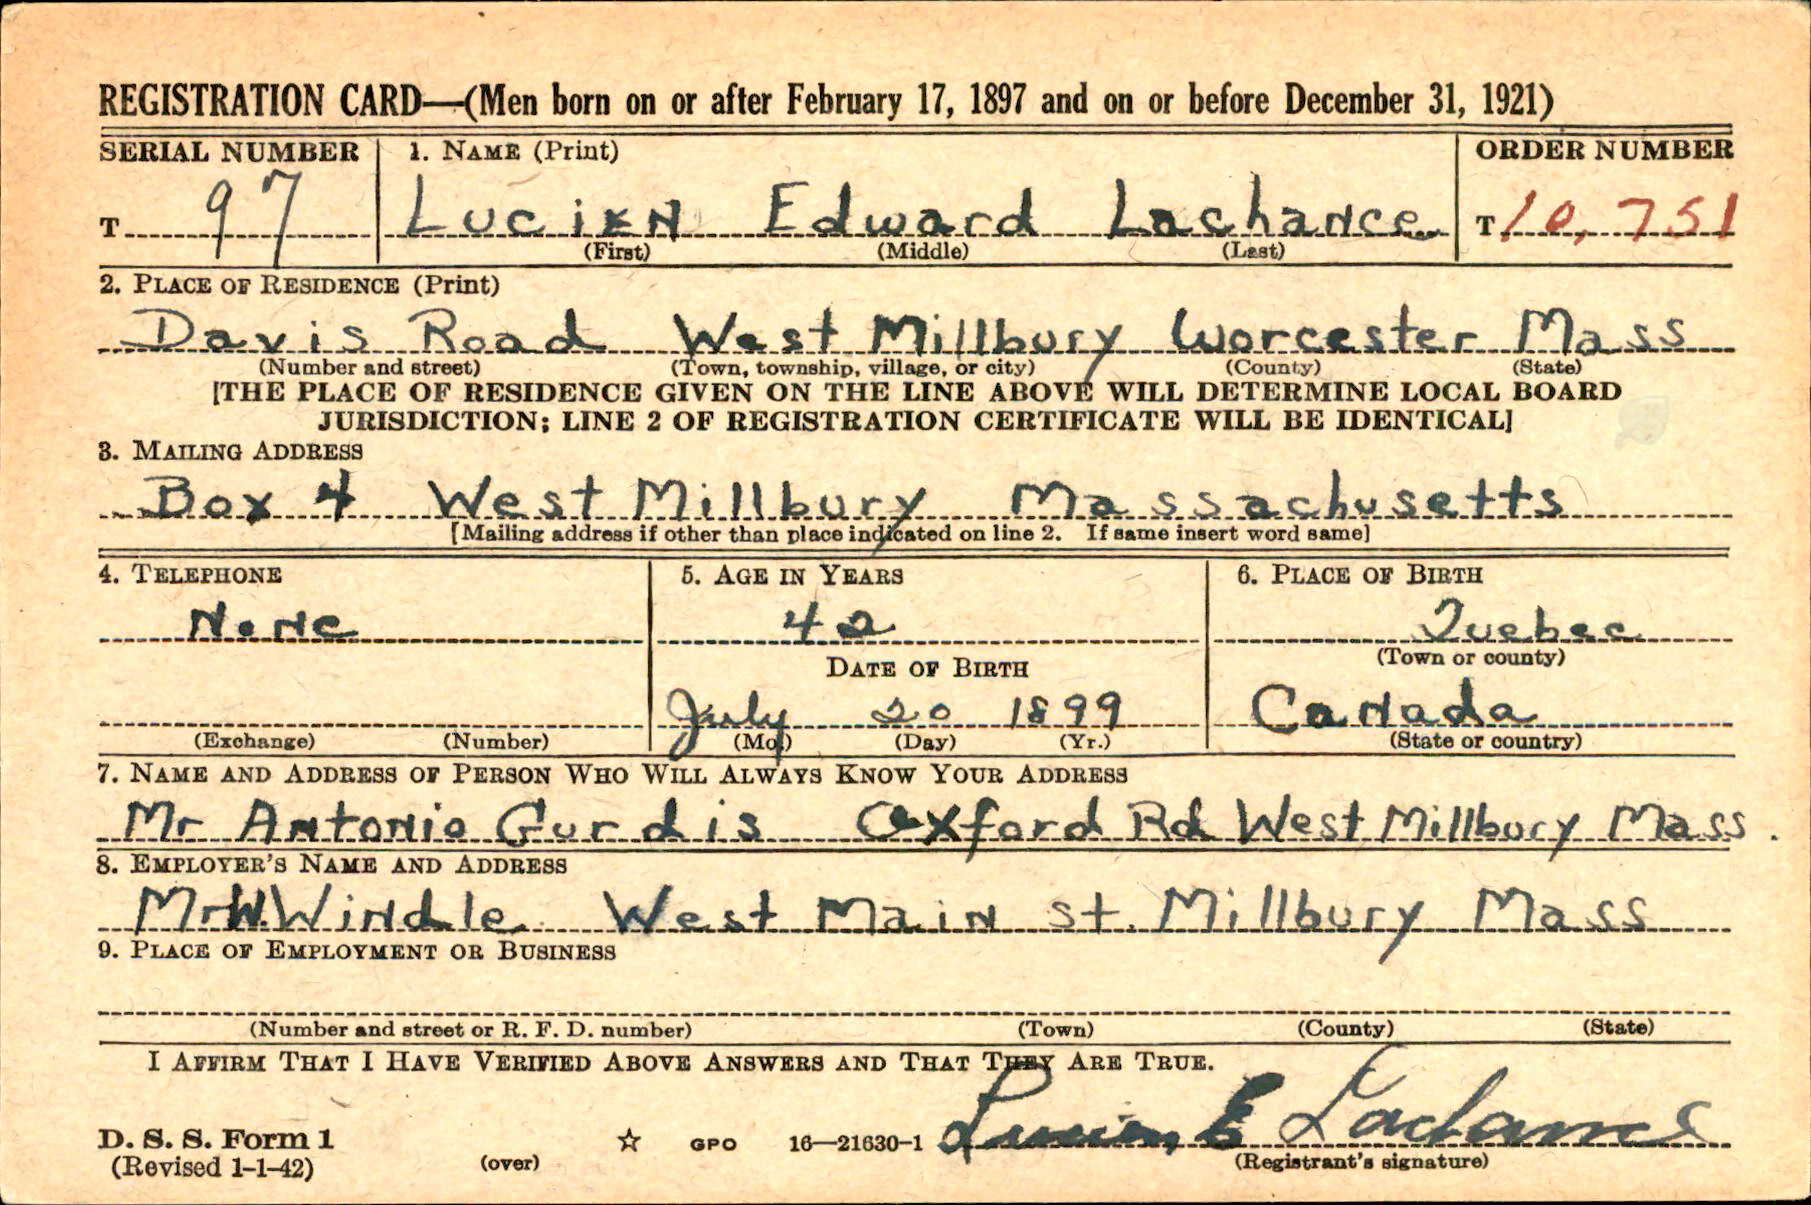 REGISTRATION CARD—(Men born on or after February 17, 1897 and on or before December 31, 1921)
SERIAL NUMBER 1. NAME (Print) ORDER NUMBER
T 97 Lucien Edward Lachance T 10,751
(First) (Middle) (Last)
2. PLACE OF RESIDENCE (Print)
Davis Road West Millbury Worcester Mass
(Number and street) (Town, township, village, or city) (County) (State)
[THE PLACE OF RESIDENCE GIVEN ON THE LINE ABOVE WILL DETERMINE LOCAL BOARD
JURISDICTION; LINE 2 OF REGISTRATION CERTIFICATE WILL BE IDENTICAL]
3. MAILING ADDRESS
Box 4 West Millbury Massachusetts
[Mailing address if other than place indicated on line 2. If same insert word same]
4. TELEPHONE 5. AGE IN YEARS 6. PLACE OF BIRTH
None 42 Quebec
DATE OF BIRTH (Town or county)
July 20 1899 Canada
(Exchange) (Number) (Mo.) (Day) (Yr.) (State or country)
7. NAME AND ADDRESS OF PERSON WHO WILL ALWAYS KNOW YOUR ADDRESS
Mr Antonio Gurdis Oxford Rd West Millbury Mass.
8. EMPLOYER'S NAME AND ADDRESS
Mr W. Windle West Main St. Millbury Mass
9. PLACE OF EMPLOYMENT OR BUSINESS
(Number and street or R. F. D. number) (Town) (County) (State)
I AFFIRM THAT I HAVE VERIFIED ABOVE ANSWERS AND THAT THEY ARE TRUE.
D. S. S. Form 1 ☆ GPO 16—21630-1 Lucien E Lachance
(Revised 1-1-42) (over) (Registrant's signature)